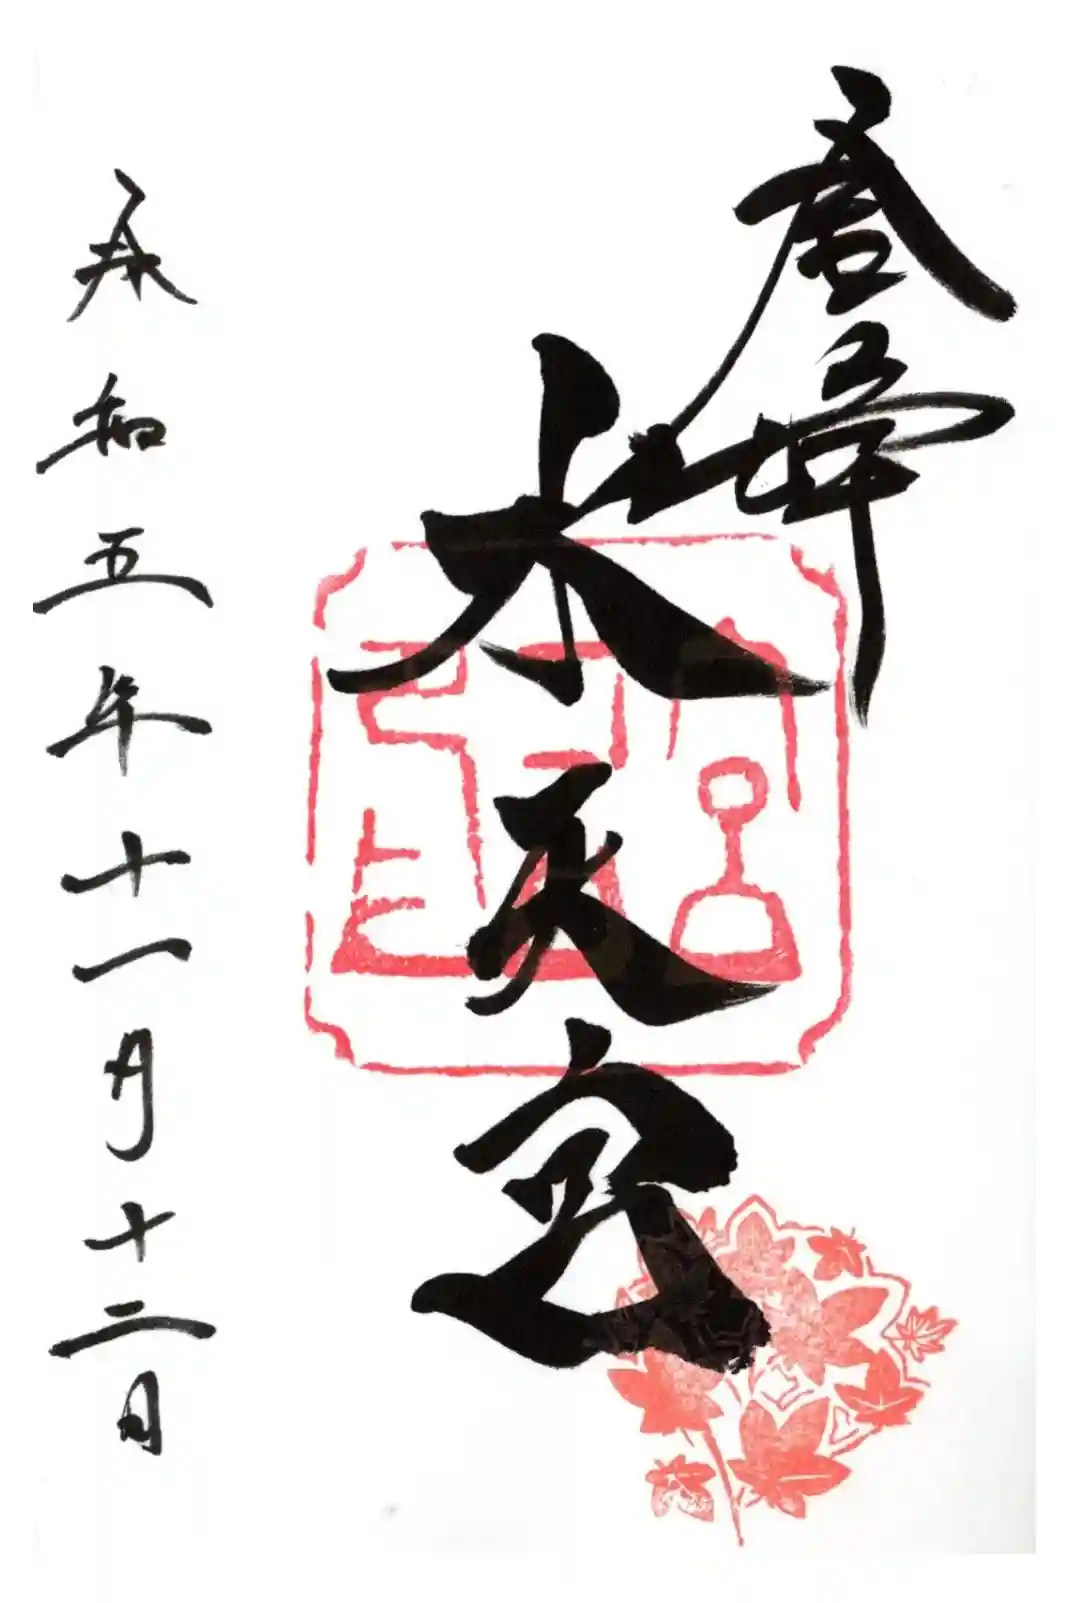 水天宮
令和五年十一月十二日